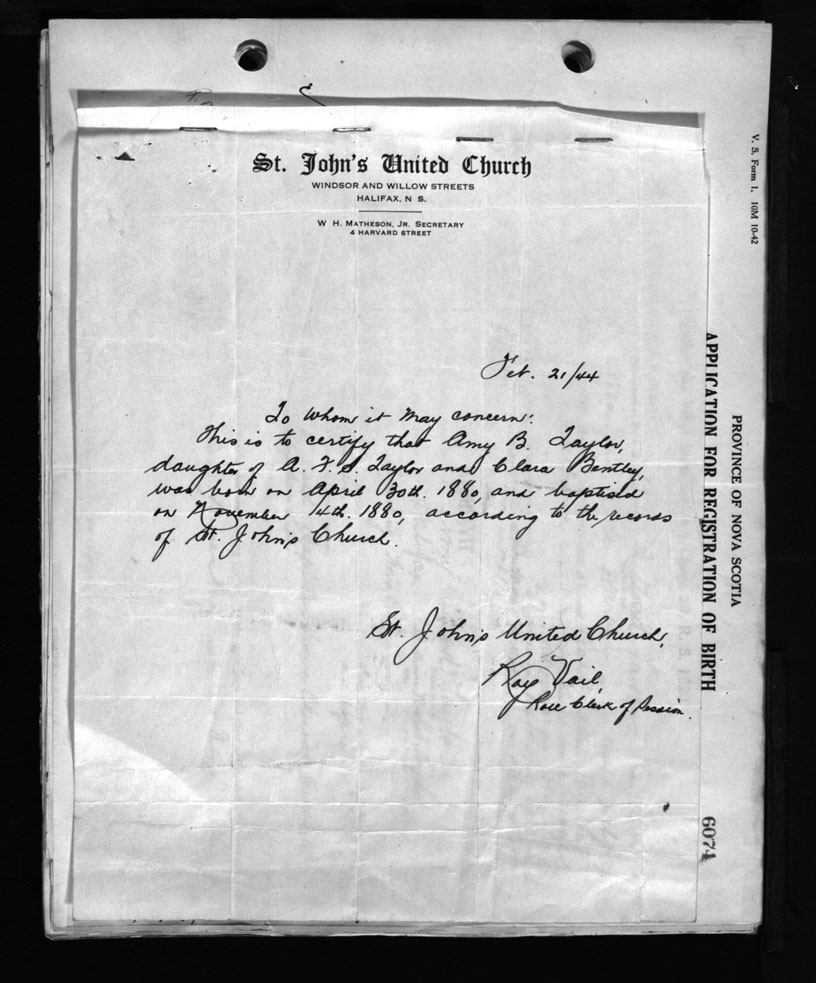 St. John's United Church
WINDSOR AND WILLOW STREETS
HALIFAX, N S.
W H. MATHESON, JR. SECRETARY
4 HARVARD STREET
Feb. 21/44
To whom it may concern:
This is to certify that Amy B. Taylor,
daughter of A. F. S. Taylor and Clara Bentley,
was born on April 30th. 1880, and baptised
on November 14th. 1880, according to the records
of St. John's Church.
St. John's United Church,
Ray Vail,
Roll Clerk of Session.
V. S. Form 1. 10M 10-42
PROVINCE OF NOVA SCOTIA
APPLICATION FOR REGISTRATION OF BIRTH
6074